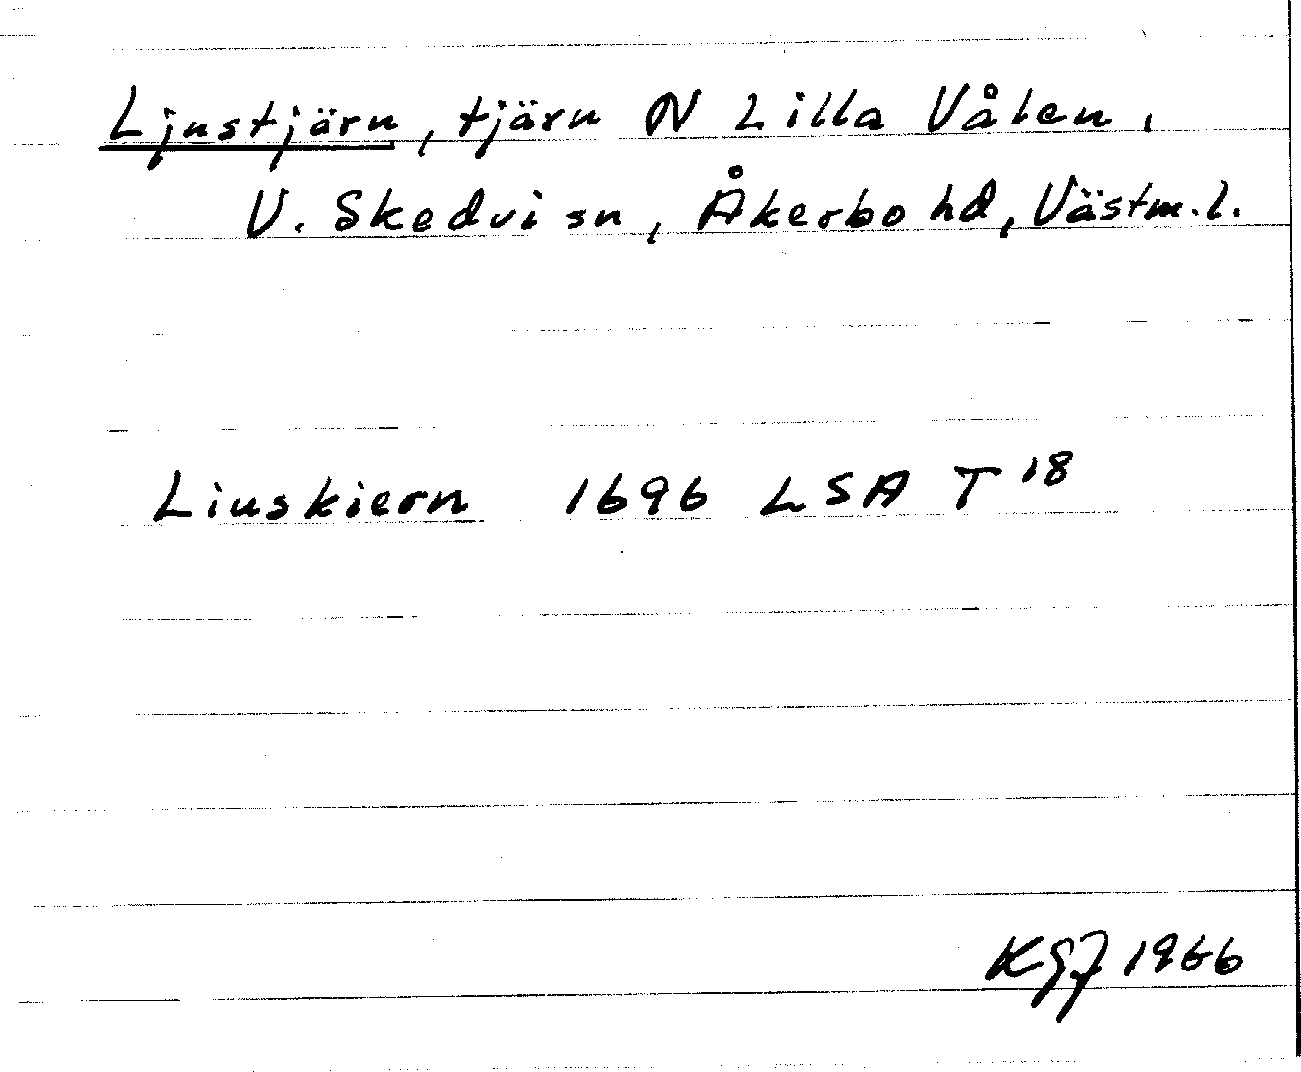 Ljustjärn, tjärn N Lilla Vålen,
V. Skedvi sn, Åkerbo hd, Västm. l.
Liuskiern 1696 LSA T 18
KGJ 1966